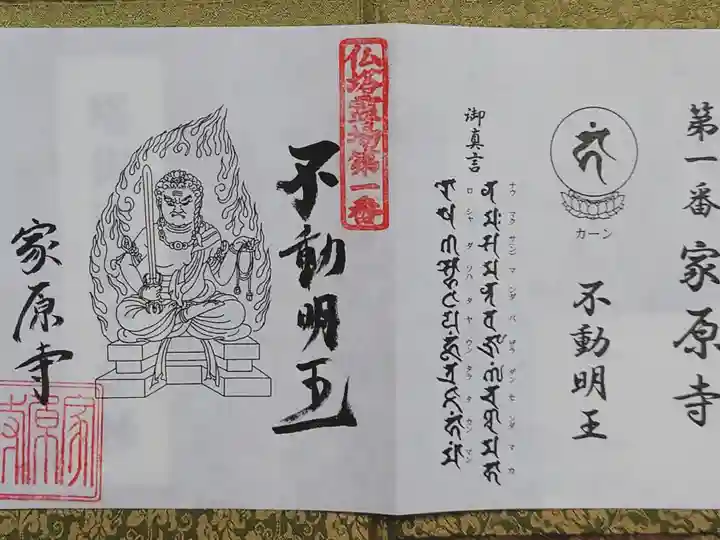 第一番 家原寺
カーン
不動明王
御真言
ナウ マク サンマンダ バ ザラ ダン センダ マ カ
ロ シャ ダ ソハ タ ヤ ウン タラ タ カン マン
仏塔霊場第一番
不動明王
家原寺
家原寺